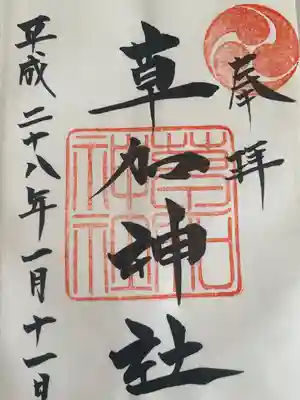 奉拝
草加神社
平成二十八年一月十一日